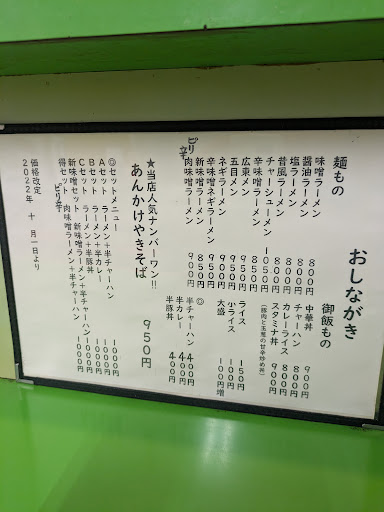 おしながき
麺もの
味噌ラーメン 800円
醤油ラーメン 800円
塩ラーメン 800円
昔風ラーメン 800円
チャーシューメン 1050円
辛味噌ラーメン 850円
広東メン 950円
五目メン 950円
ネギラーメン 850円
辛味噌ネギラーメン 950円
新味噌ラーメン 850円
ピリ辛 肉味噌ラーメン 900円
御飯もの
中華丼 900円
チャーハン 800円
カレーライス 800円
スタミナ丼 900円
(豚肉と玉葱の甘辛炒め丼)
ライス 150円
小ライス 100円
大盛 100円増
◎半チャーハン 400円
半カレー 400円
半豚丼 400円
★当店人気ナンバーワン!!
あんかけやきそば 950円
◎セットメニュー
Aセット ラーメン+半チャーハン 1000円
Bセット ラーメン+半カレー 1000円
Cセット ラーメン+半豚丼 1000円
新味噌セット 新味噌ラーメン+半チャーハン 1000円
得セット ピリ辛 肉味噌ラーメン+半チャーハン 1000円
価格改定
2022年 十月一日より